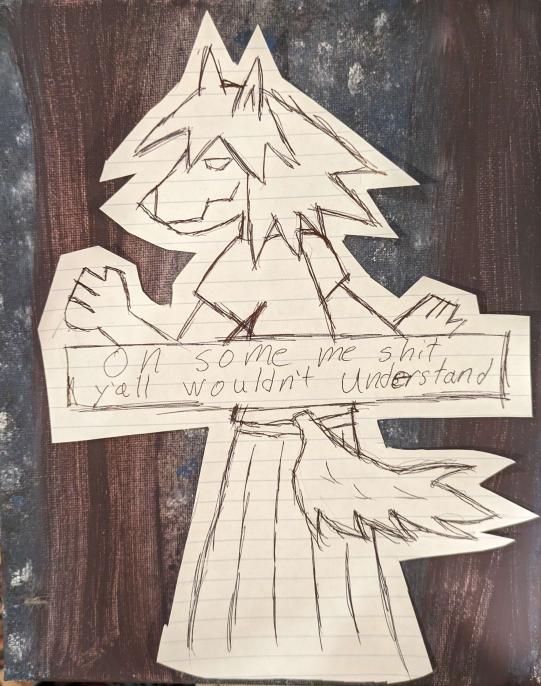 On some me shit
y'all wouldn't Understand